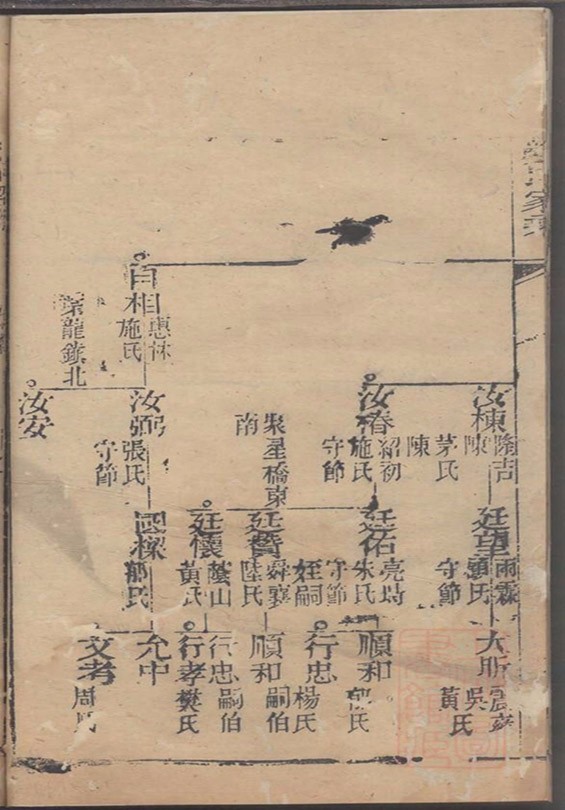 自相
惠林
施氏
龍鎮北
汝棟
隆吉
陳
茅氏
陳
汝椿
紹初
施氏
守節
聚星橋東
南
汝弼
張氏
守節
汝安
廷望
雨霖
顧氏
守節
廷佑
亮時
朱氏
守節
姪嗣
廷贊
舜襄
陸氏
廷懷
蔭山
黃氏
國樑
郁氏
大
吳氏
黃氏
順和
氏
行忠
楊氏
順和
嗣伯
行忠
嗣伯
行孝
樊氏
允中
文考
周氏